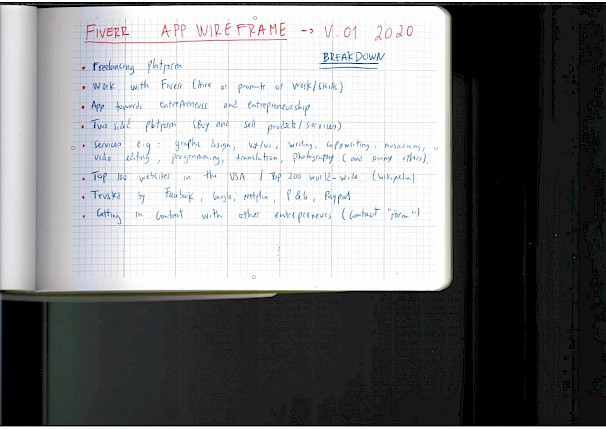 FIVERR APP WIREFRAME -> V.01 2020
BREAKDOWN
• Freelancing platform
• Work with Fiverr (Hire or promote of work/skills)
• App towards entrepreneurs and entrepreneurship
• Two sided platform (Buy and sell products/services)
• Services e.g: graphic design, ux/ui, writing, copywriting, musicians,
video editing, programming, translation, photography (and many others).
• Top 100 websites in the USA / Top 200 world-wide (wikipedia)
• Trusted by Facebook, Google, Netflix, P&G, Paypal
• Getting in contact with other entrepreneurs (contact "form")